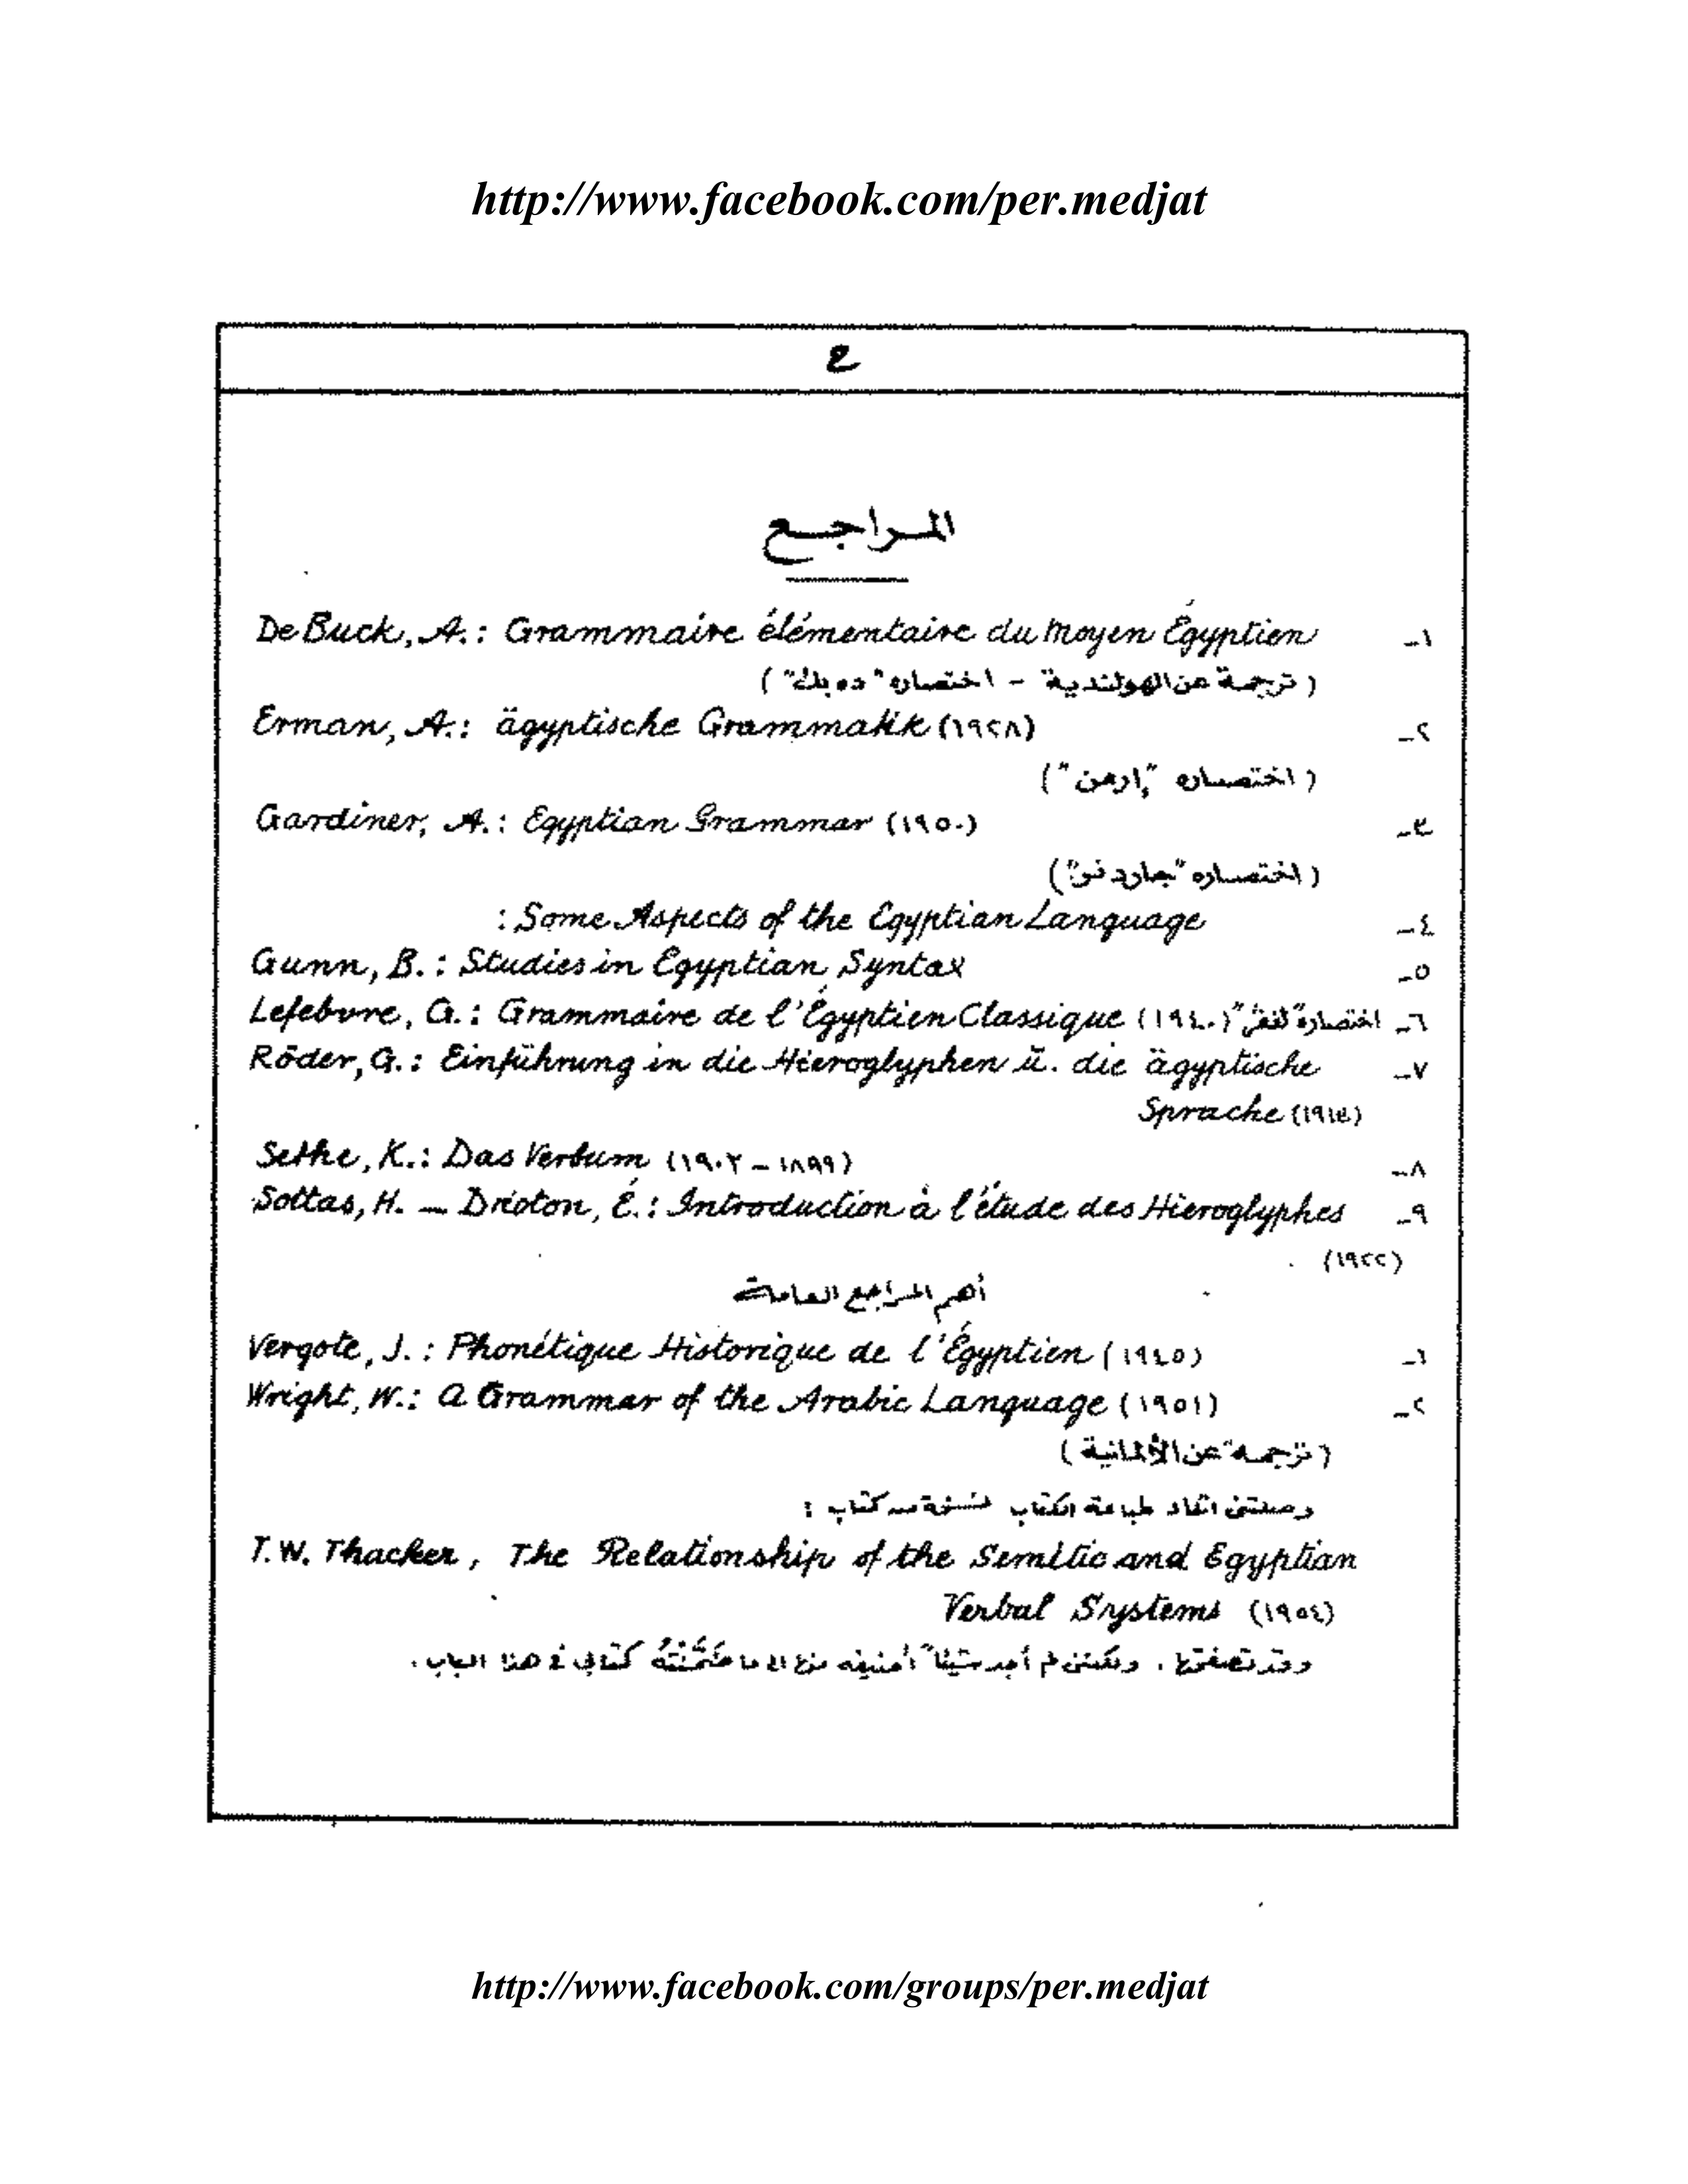 http://www.facebook.com/per.medjat
ع
المراجع
De Buck, A.: Grammaire élémentaire du Moyen Égyptien -١
(ترجمة عن الهولندية - اختصاره "ده بك")
Erman, A.: ägyptische Grammatik (١٩٢٨) -٢
(اختصاره "إرمن")
Gardiner, A.: Egyptian Grammar (١٩٥٠) -٣
(اختصاره "جاردنر")
: Some Aspects of the Egyptian Language -٤
Gunn, B.: Studies in Egyptian Syntax -٥
Lefebvre, G.: Grammaire de l'Égyptien Classique (١٩٤٠) اختصاره -٦
Röder, G.: Einführung in die Hieroglyphen ü. die ägyptische -٧
Sprache (١٩١٣)
Sethe, K.: Das Verbum (١٨٩٩ - ١٩٠٢) -٨
Sottas, H. - Drioton, É.: Introduction à l'étude des Hieroglyphes -٩
(١٩٢٢)
أهم المراجع العامة
Vergote, J.: Phonétique Historique de l'Égyptien (١٩٤٥) -١
Wright, W.: A Grammar of the Arabic Language (١٩٥١) -٢
(ترجمة عن الألمانية)
وصلتنى اثناء طباعة الكتاب نسخة من كتاب :
T. W. Thacker, The Relationship of the Semitic and Egyptian
Verbal Systems (١٩٥٤)
وقد تصفحتها . ولكننى لم أجد شيئاً أضيفه إلى ما ضمنته كتابى فى هذا الباب .
http://www.facebook.com/groups/per.medjat